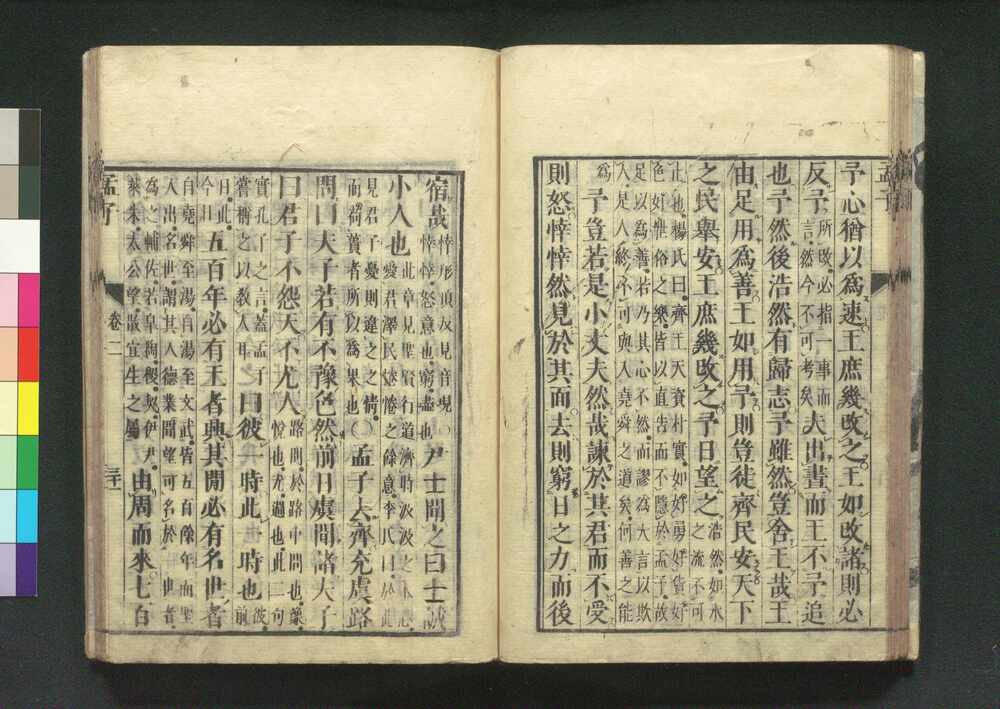 孟子
予心猶以爲速王庶幾改之王如改諸則必
反予所改必指一事而言然今不可考矣夫出晝而王不予追
也予然後浩然有歸志予雖然豈舍王哉王
由足用爲善王如用予則豈徒齊民安天下
之民舉安王庶幾改之予日望之浩然如水之流不可
止也楊氏曰齊王天資朴實如好勇好貨好
色好世俗之樂皆以直告而不隱於孟子故
足以爲善若乃其心不然而謬爲大言以欺
人是人終不可與入堯舜之道矣何善之能
爲予豈若是小丈夫然哉諫於其君而不受
則怒悻悻然見於其面去則窮日之力而後
宿哉悻形頂反見音現○悻悻怒意也窮盡也尹士聞之曰士誠
小人也此章見聖賢行道濟時汲汲之本心愛君澤民惓惓之餘意李氏曰於此
見君子憂則違之之情而荷蕢者所以爲果也○孟子去齊充虞路
問曰夫子若有不豫色然前日虞聞諸夫子
曰君子不怨天不尤人路問於路中問也豫悅也尤過也此二句
實孔子之言蓋孟子嘗稱之以敎人耳曰彼一時此一時也彼前
日此今日五百年必有王者興其閒必有名世者
自堯舜至湯自湯至文武皆五百餘年而聖
人出名世謂其人德業聞望可名於一世者
爲之輔佐若皐陶稷契伊尹萊朱太公望散宜生之屬由周而來七百
孟子
卷二
三十一